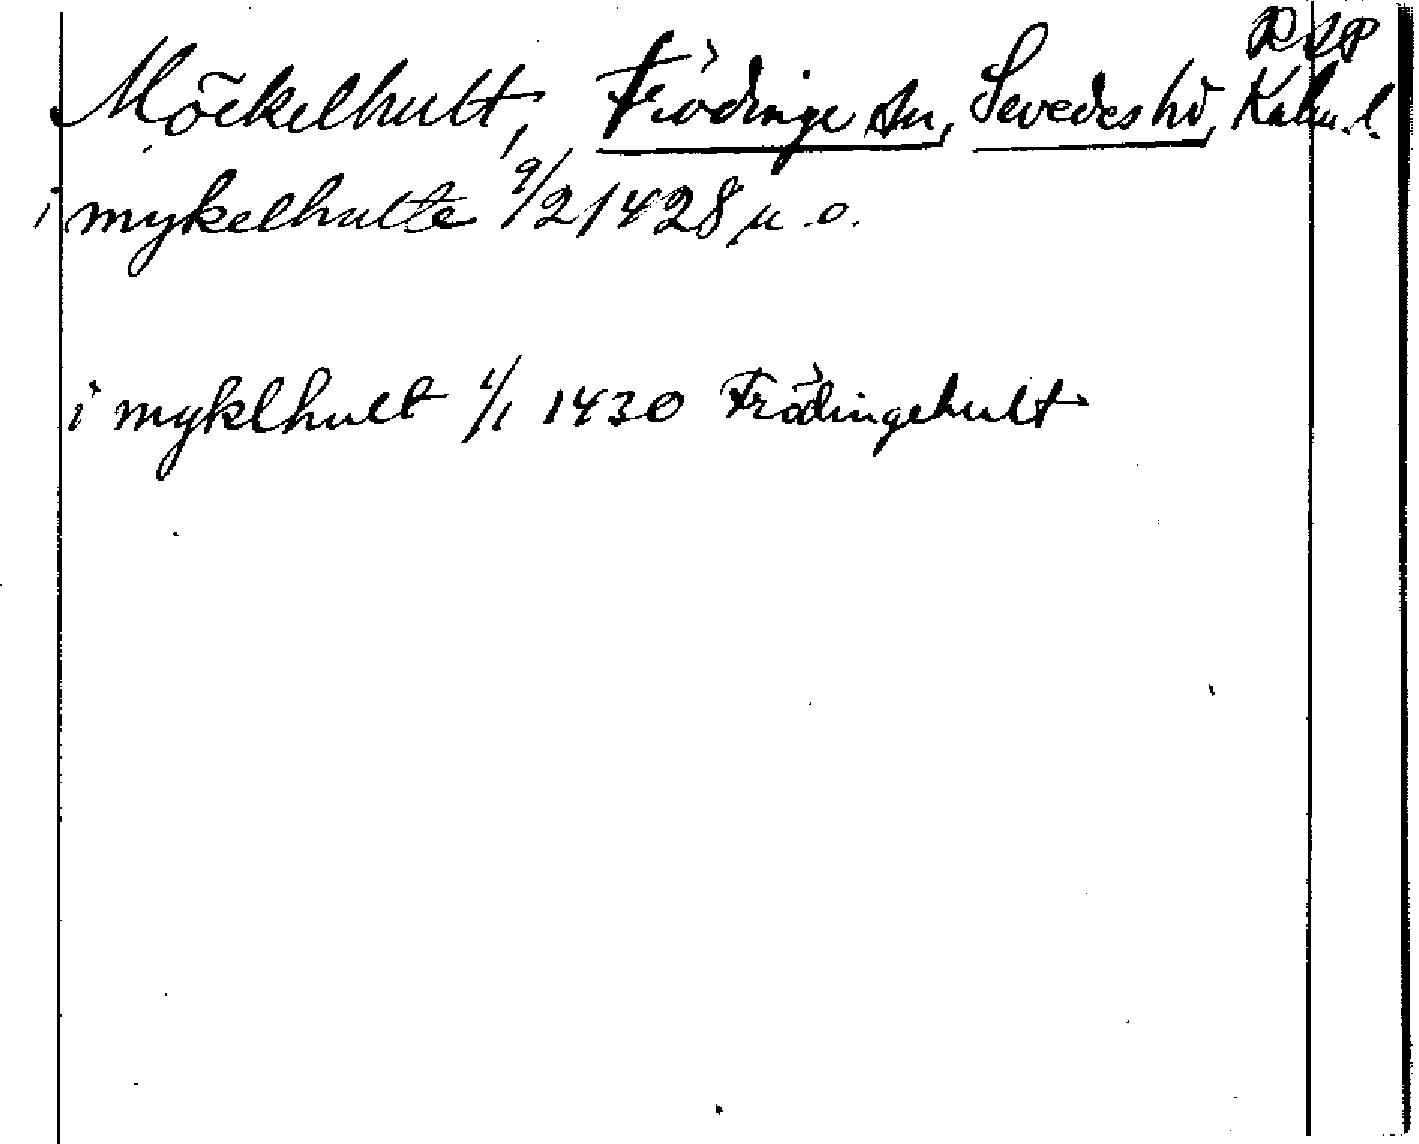 RAP
Möckelhult, Frödinge sn, Sevedes hd, Kalm. l.
i mykelhulte 9/2 1428 u. o.
i myklhult 1/1 1430 Frödingehult